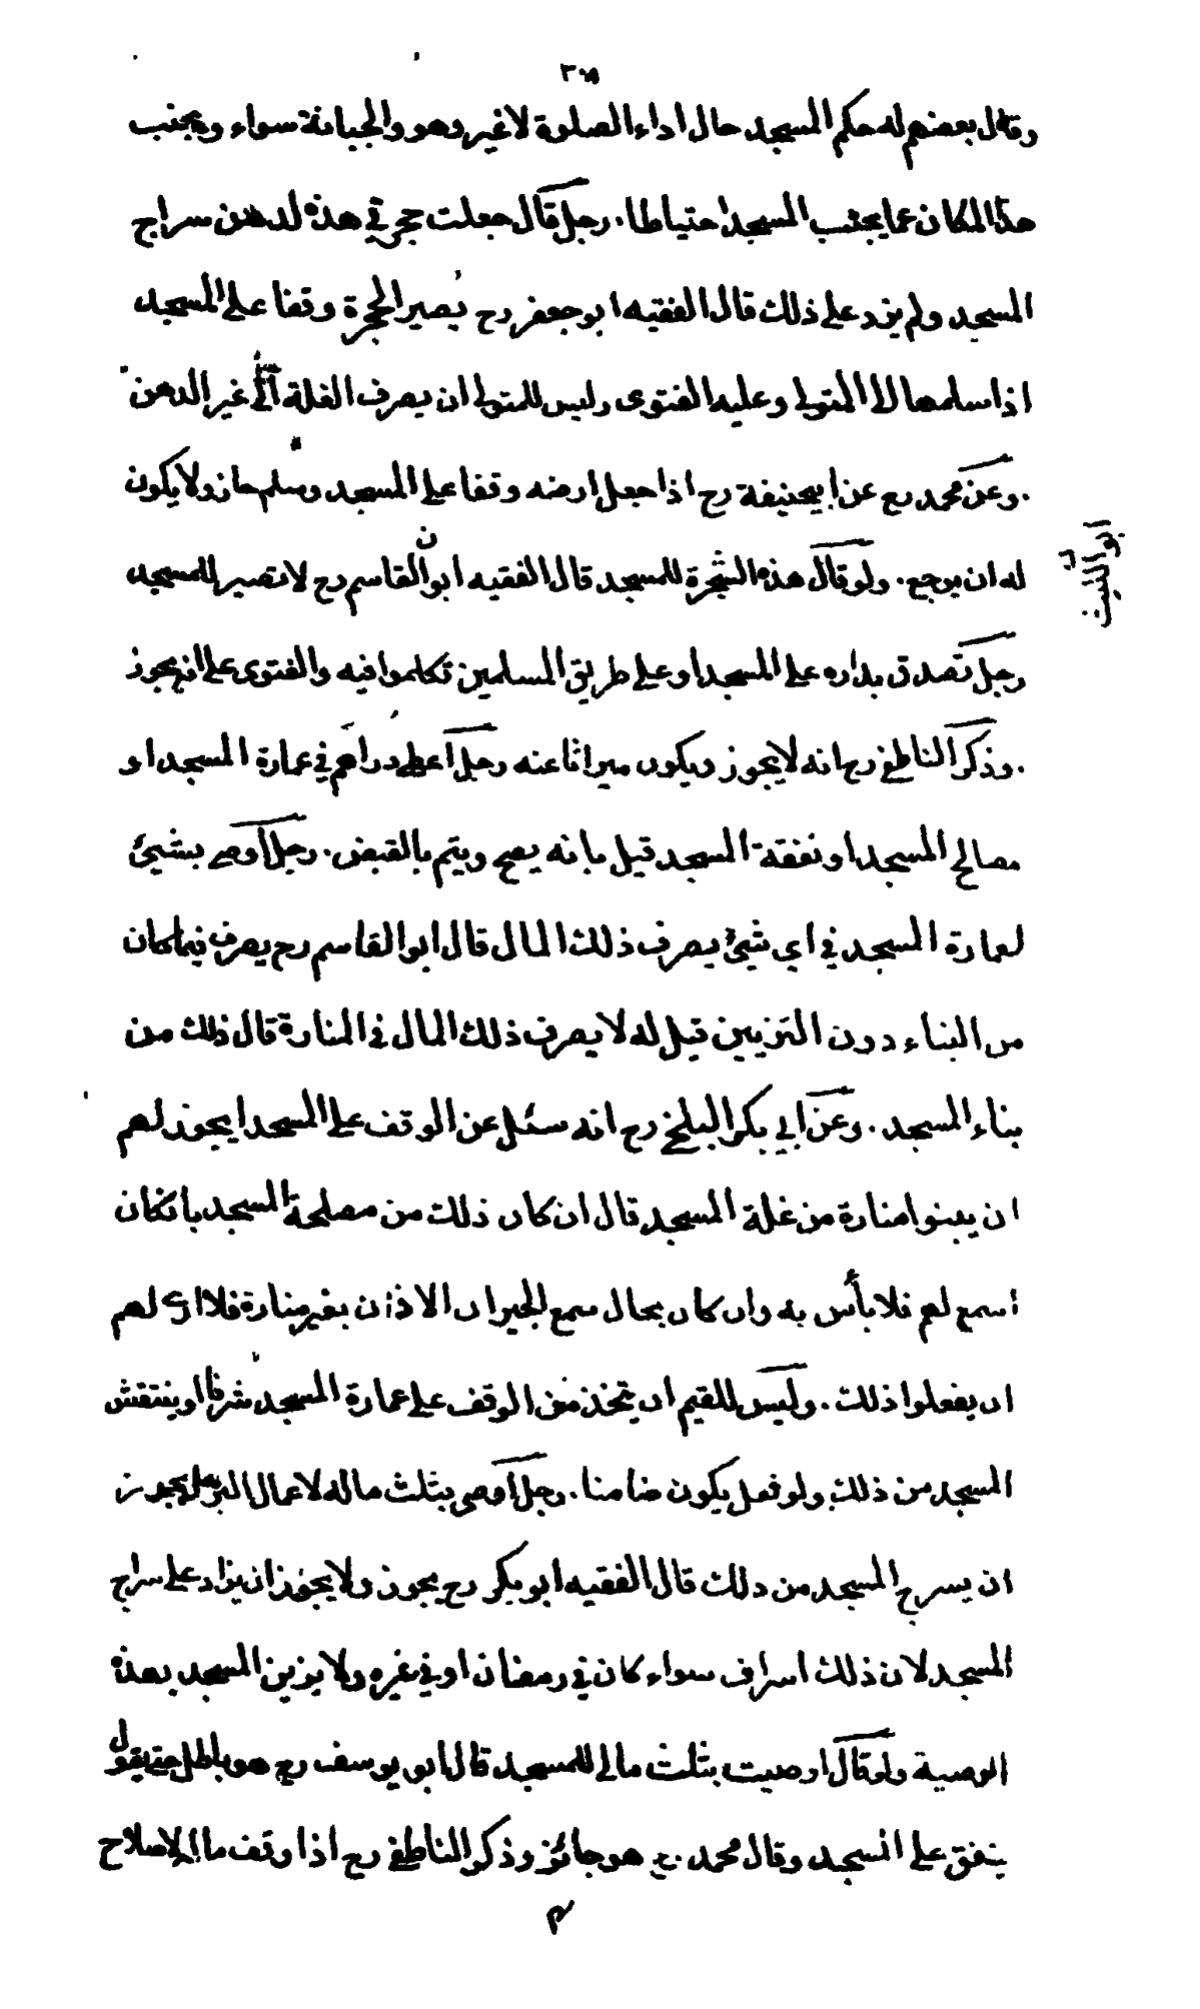 وقال بعضهم له حكم المسجد حال اداء الصلوة لا غير وهو والجبانة سواء ويجنب
هذا المكان عما يجنب المسجد احتياطا. رجل قال جعلت حجرتي هذه لدهن سراج
المسجد ولم يزد على ذلك قال الفقيه ابو جعفر رح يصير الحجرة وقفا على المسجد
اذا سلمها الى المتولى وعليه الفتوى وليس للمتولى ان يصرف الغلة الى غير الدهن
.وعن محمد رح عن ابيحنيفة رح اذا جعل ارضه وقفا على المسجد وسلم جاز ولا يكون
له ان يرجع. ولو قال هذه الشجرة للمسجد قال الفقيه ابو القاسم رح لا تصير للمسجد
ابو الليث
رجل تصدق بداره على المسجد او على طريق المسلمين تكلموا فيه والفتوى على انه يجوز
.وذكر الناطفي رح انه لا يجوز ويكون ميراثا عنه رجل اعطى دراهم في عمارة المسجد او
مصالح المسجد او نفقة المسجد قيل بانه يصح ويتم بالقبض. رجل اوصى بشيئ
لعمارة المسجد في اي شيئ يصرف ذلك المال قال ابو القاسم رح يصرف فيما كان
من البناء دون التزيين قيل له لا يصرف ذلك المال في المنارة قال ذلك من
بناء المسجد. وعن ابي بكر البلخي رح انه سئل عن الوقف على المسجد ايجوز لهم
ان يبنوا منارة من غلة المسجد قال ان كان ذلك من مصلحة المسجد بان كان
اسمع لهم فلا بأس به وان كان بحال سمع الجيران الاذان بغير منارة فلا ارى لهم
ان يفعلوا ذلك. وليس للقيم ان يتخذ من الوقف على عمارة المسجد شرفا او ينتقش
المسجد من ذلك ولو فعل يكون ضامنا. رجل اوصى بثلث ماله لاعمال البر هل يجوز
ان يسرج المسجد من ذلك قال الفقيه ابو بكر رح يجوز ولا يجوز ان يزاد على سراج
المسجد لان ذلك اسراف سواء كان في رمضان او في غيره ولا يزين المسجد بهذه
الوصية ولو قال اوصيت بثلث مالي للمسجد قال ابو يوسف رح هو باطل حتى يقول
ينفق على المسجد وقال محمد رح هو جائز وذكر الناطفي رح اذا وقف ماله لاصلاح